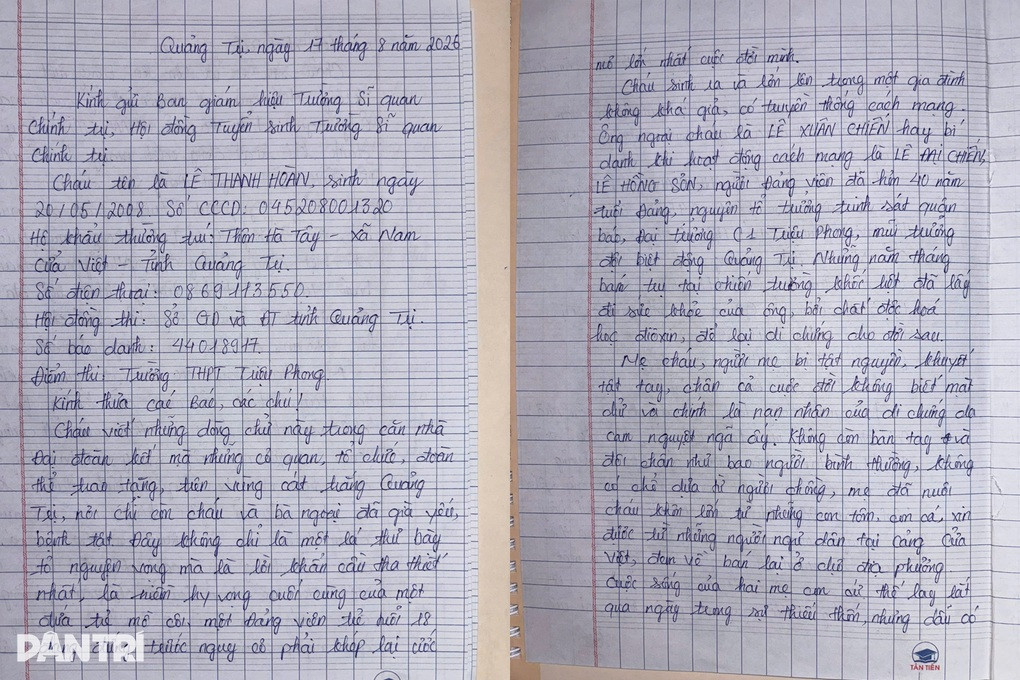 Quảng Trị, ngày 17 tháng 8 năm 2026
Kính gửi Ban giám hiệu Trường Sĩ quan
Chính trị, Hội đồng Tuyển sinh Trường Sĩ quan
Chính trị.
Cháu tên là LÊ THANH HOÀN, sinh ngày
20/05/2008. Số CCCD: 045208001320
Hộ khẩu thường trú: Thôn Hà Tây - xã Nam
Cửa Việt - Tỉnh Quảng Trị.
Số điện thoại: 0869113550.
Hội đồng thi: Sở GD và ĐT tỉnh Quảng Trị.
Số báo danh: 44018917.
Điểm thi: Trường THPT Triệu Phong.
Kính thưa các Bác, các chú!
Cháu viết những dòng chữ này trong căn nhà
Đại đoàn kết mà những cơ quan, tổ chức, đoàn
thể trao tặng, trên vùng cát trắng Quảng
Trị, nơi chỉ còn cháu và bà ngoại đã già yếu,
bệnh tật. Đây không chỉ là một lá thư bày
tỏ nguyện vọng mà là lời khẩn cầu tha thiết
nhất, là niềm hy vọng cuối cùng của một
đứa trẻ mồ côi, một Đảng viên trẻ tuổi 18
trước nguy cơ phải khép lại ước
DÂN TRÍ
mơ lớn nhất cuộc đời mình.
Cháu sinh ra và lớn lên trong một gia đình
không khá giả, có truyền thống cách mạng.
Ông ngoại cháu là LÊ XUÂN CHIẾN hay bí
danh khi hoạt động cách mạng là LÊ ĐẠI CHIẾN,
LÊ HỒNG SƠN, người Đảng viên đã hơn 40 năm
tuổi Đảng, nguyên tổ trưởng trinh sát quân
báo, Đại trưởng C1 Triệu Phong, mũi trưởng
đội biệt động Quảng Trị. Những năm tháng
bám trụ tại chiến trường khốc liệt đã lấy
đi sức khỏe của ông, bởi chất độc hoá
học dioxin, để lại di chứng cho đời sau.
Mẹ cháu, người mẹ bị tật nguyền, khuyết
tật tay, chân cả cuộc đời không biết mặt
chữ và chính là nạn nhân của di chứng da
cam nguyệt ngã ấy. Không còn bàn tay và
đôi chân như bao người bình thường, không
có chỗ dựa từ người chồng, mẹ đã nuôi
cháu khôn lớn từ những con tôm, con cá, xin
được từ những người ngư dân tại cảng Cửa
Việt, đem về bán lại ở chợ địa phương
Cuộc sống của hai mẹ con cứ thế lay lắt
qua ngày trong sự thiếu thốn, nhưng dẫu có
TÂN TIẾN